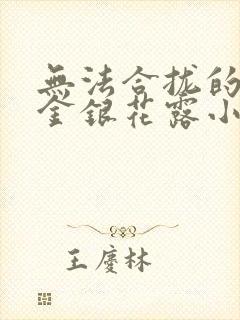 無法合拢的
金银花露小
王慶林